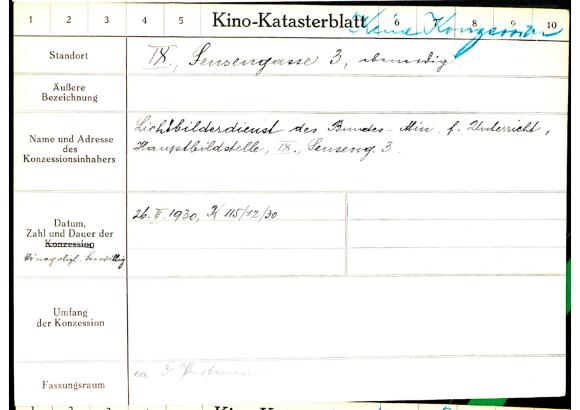 1 2 3 4 5 Kino-Katasterblatt 6 7 8 9 10
Keine Konzession
Standort
IX., Sensengasse 3, ebenerdig
Äußere
Bezeichnung
Name und Adresse
des
Konzessionsinhabers
Lichtbilderdienst des Bundes-Min. f. Unterricht,
Hauptbildstelle, IX., Senseng. 3.
Datum,
Zahl und Dauer der
Konzession
26. II. 1930, K 115/12/30
Umfang
der Konzession
Fassungsraum
ca 3